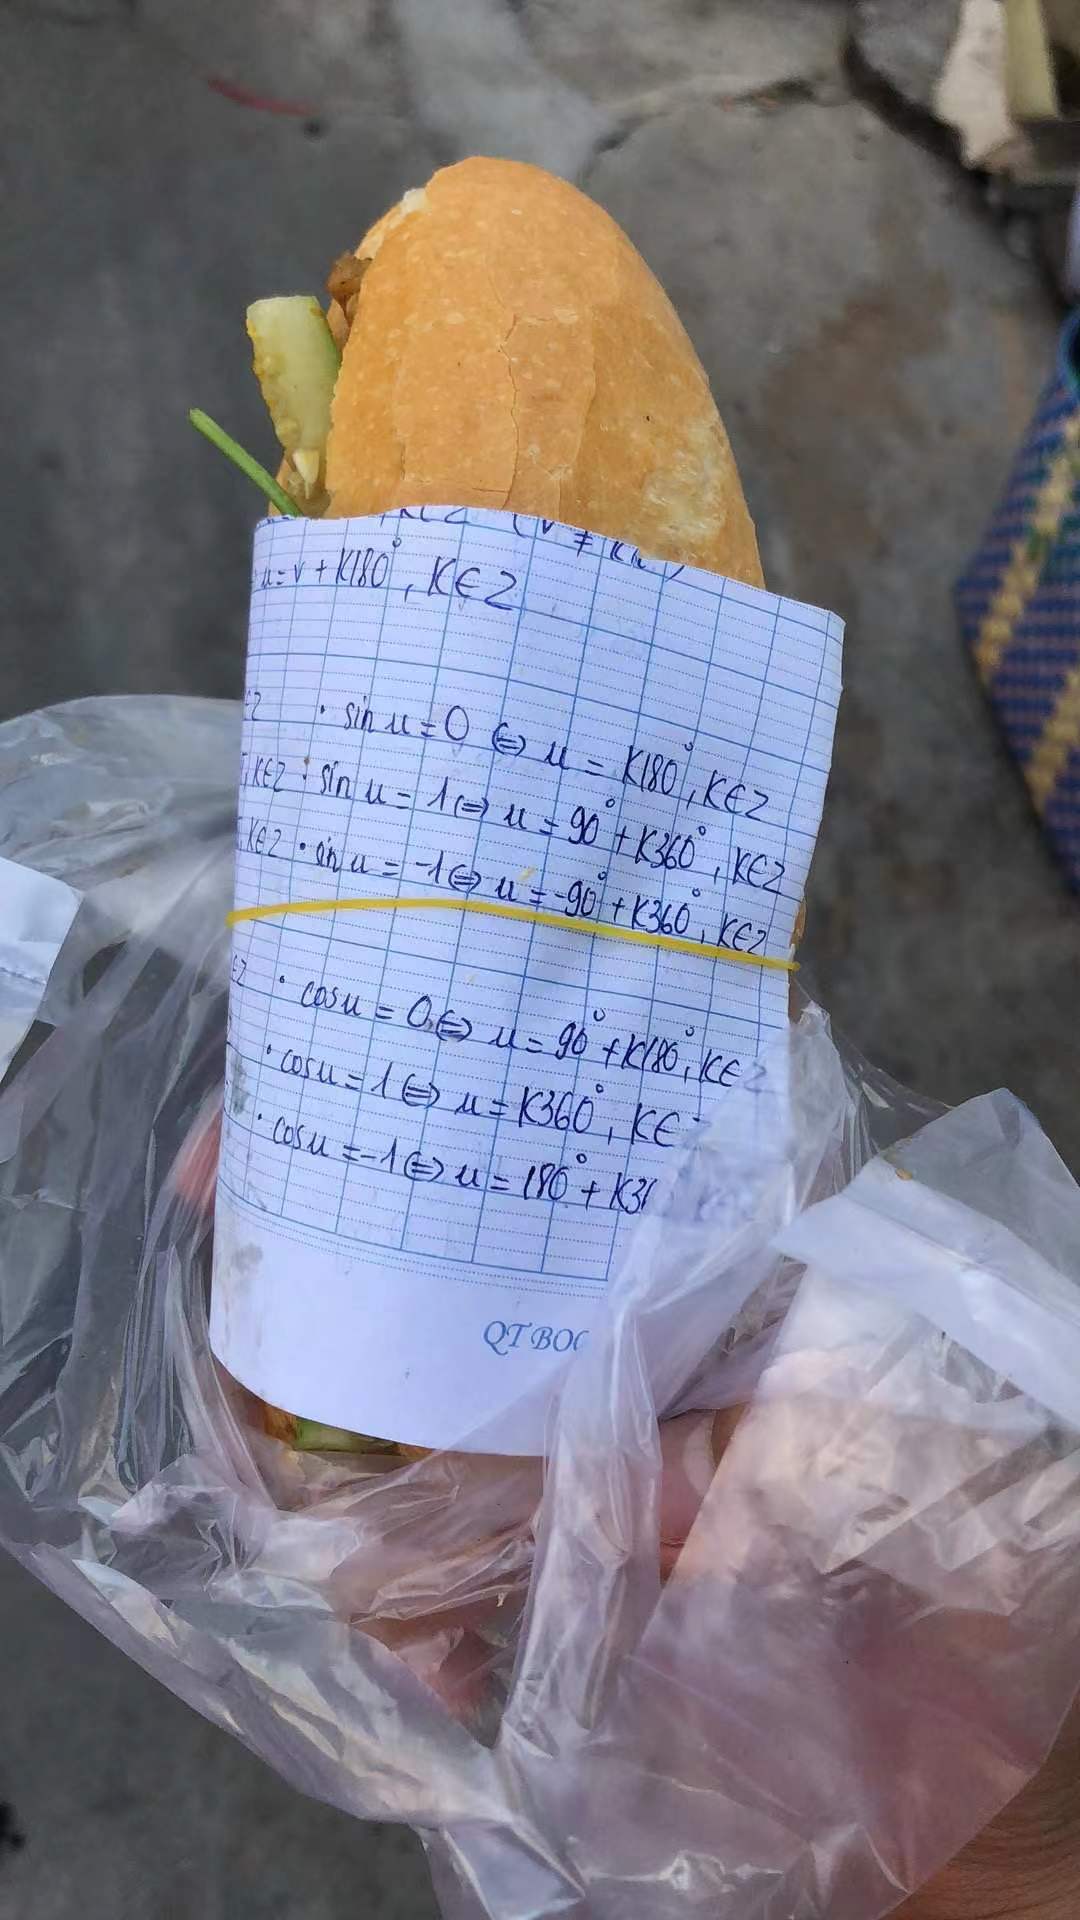 u = v + K180°, K∈Z
K∈Z · sin u = 0 ⇔ u = K180°, K∈Z
, K∈Z · sin u = 1 ⇔ u = 90° + K360°, K∈Z
, K∈Z · sin u = -1 ⇔ u = -90° + K360°, K∈Z
∈Z · cos u = 0 ⇔ u = 90° + K180°, K∈Z
· cos u = 1 ⇔ u = K360°, K∈Z
· cos u = -1 ⇔ u = 180° + K36
QT BOO